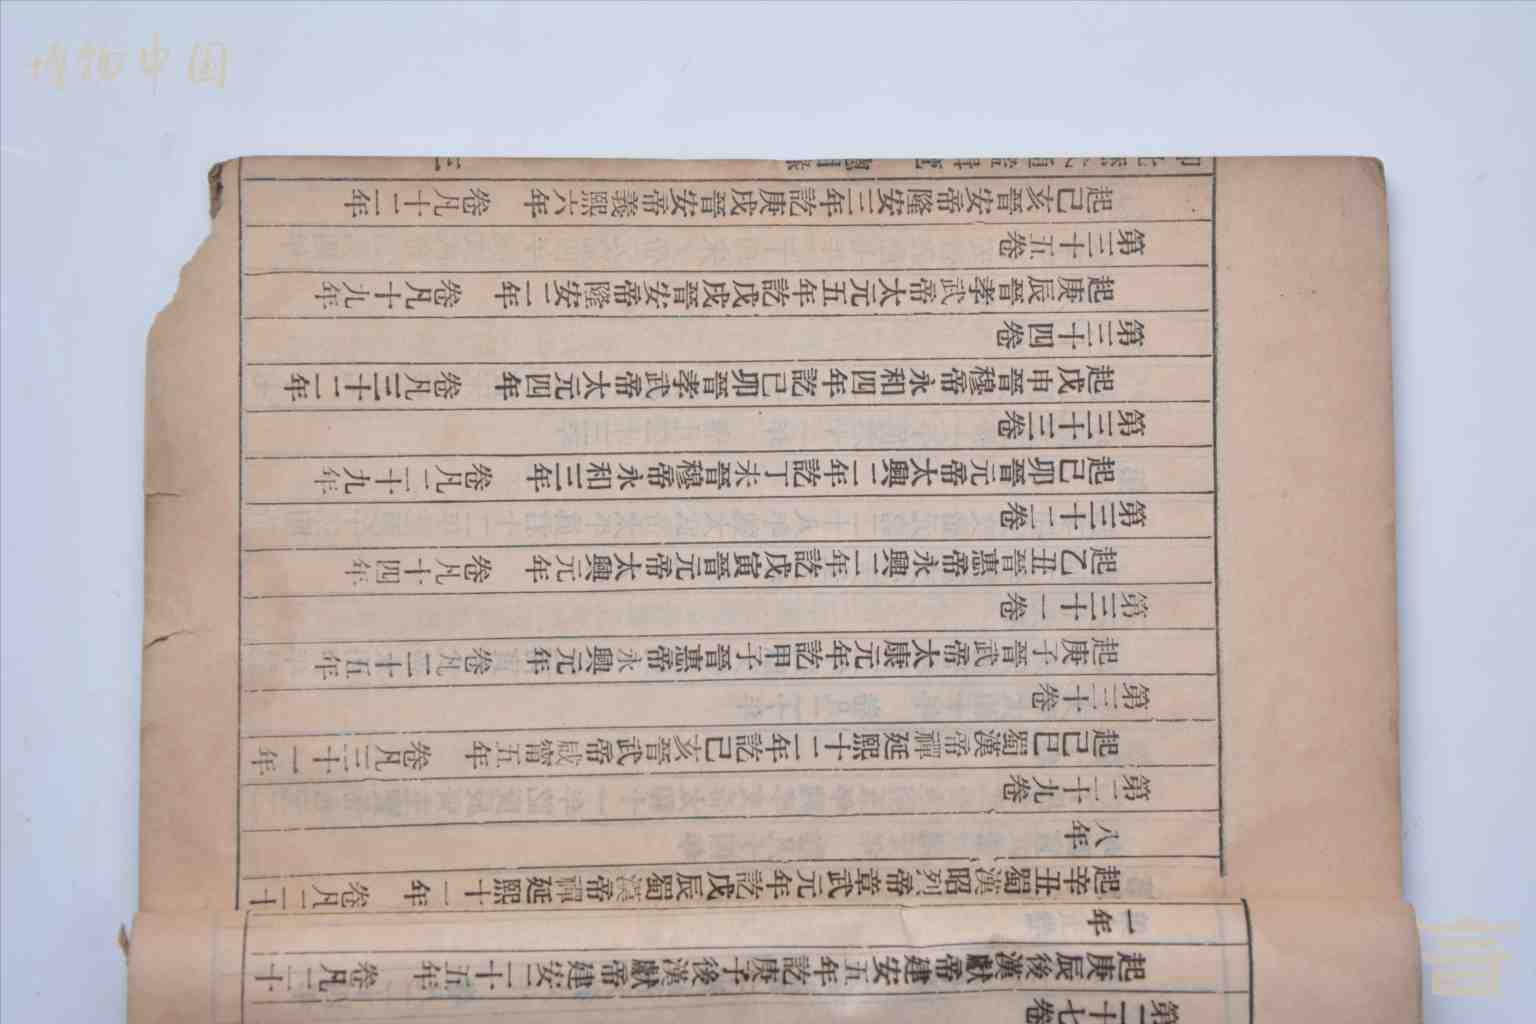 博物中国
第二十七卷
起庚辰後漢獻帝建安五年訖庚子後漢獻帝建安二十五年 卷凡二十
一年
起辛丑蜀漢昭烈帝章武元年訖戊辰蜀漢帝禪延熙十一年 卷凡二十
八年
第二十九卷
起己巳蜀漢帝禪延熙十二年訖己亥晉武帝咸甯五年 卷凡三十一年
第三十卷
起庚子晉武帝太康元年訖甲子晉惠帝永興元年 卷凡二十五年
第三十一卷
起乙丑晉惠帝永興二年訖戊寅晉元帝太興元年 卷凡十四年
第三十二卷
起己卯晉元帝太興二年訖丁未晉穆帝永和三年 卷凡二十九年
第三十三卷
起戊申晉穆帝永和四年訖己卯晉孝武帝太元四年 卷凡三十二年
第三十四卷
起庚辰晉孝武帝太元五年訖戊戌晉安帝隆安二年 卷凡十九年
第三十五卷
起己亥晉安帝隆安三年訖庚戌晉安帝義熙六年 卷凡十二年